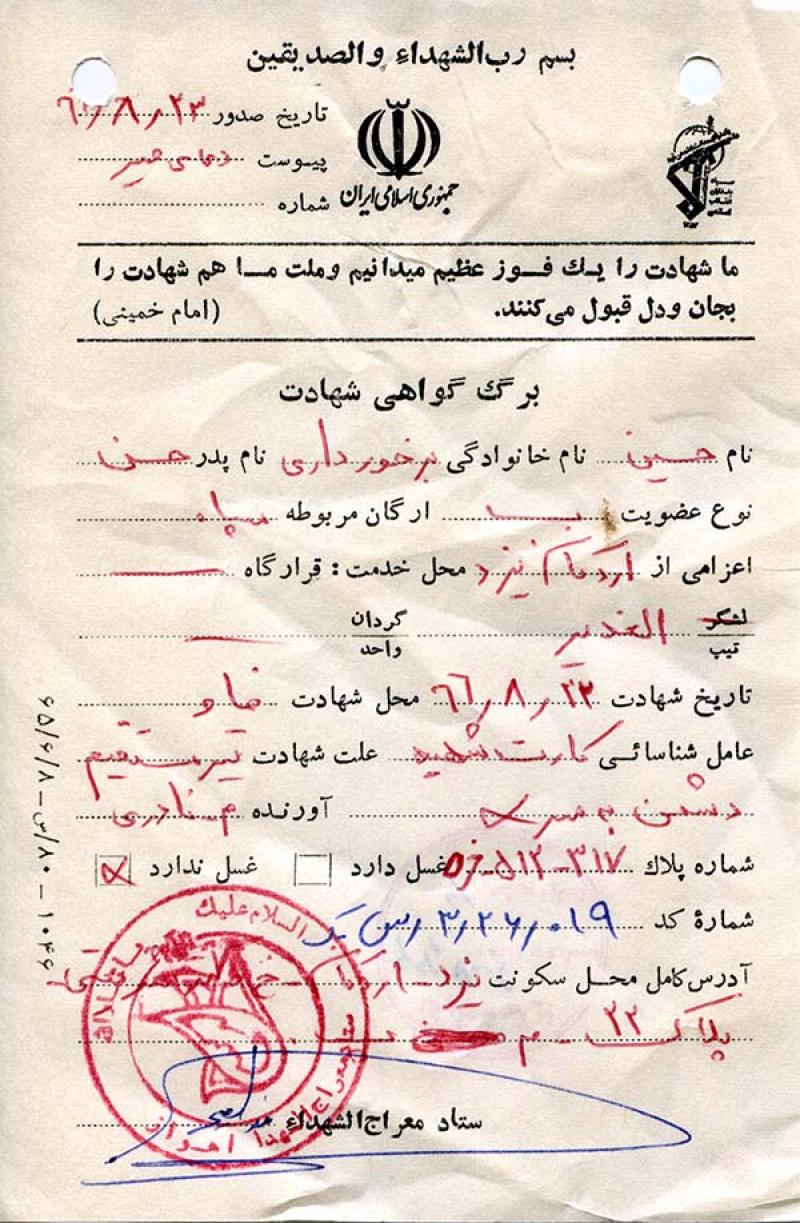 بسم رب‌الشهداء والصدیقین
تاریخ صدور ۶۱٫۸٫۲۳
پیوست
شماره
جمهوری اسلامی ایران
ما شهادت را یک فوز عظیم میدانیم وملت ما هم شهادت را
بجان ودل قبول می‌کنند. (امام خمینی)
برگ گواهی شهادت
نام حسین نام خانوادگی برخورداری نام پدر حسن
نوع عضویت ارگان مربوطه سپاه
اعزامی از اردکان یزد محل خدمت: قرارگاه
لشگر الغدیر گردان
تیپ واحد
تاریخ شهادت ۶۱٫۸٫۲۳ محل شهادت
عامل شناسائی کارت شهید علت شهادت تیر مستقیم
دشمن به سر آورنده م. نادری
شماره پلاک ۳۱۷-۵۱۲ غسل دارد غسل ندارد
شمارهٔ کد ۳٫۲۶٫۰۱۹
آدرس کامل محل سکونت یزد - اردکان
پلاک ۲۲
ستاد معراج‌الشهداء
السلام علیک
ستاد معراج الشهدا اهواز
۶۵/۶/۸ – س/۸۰ – ۱۰۴۶